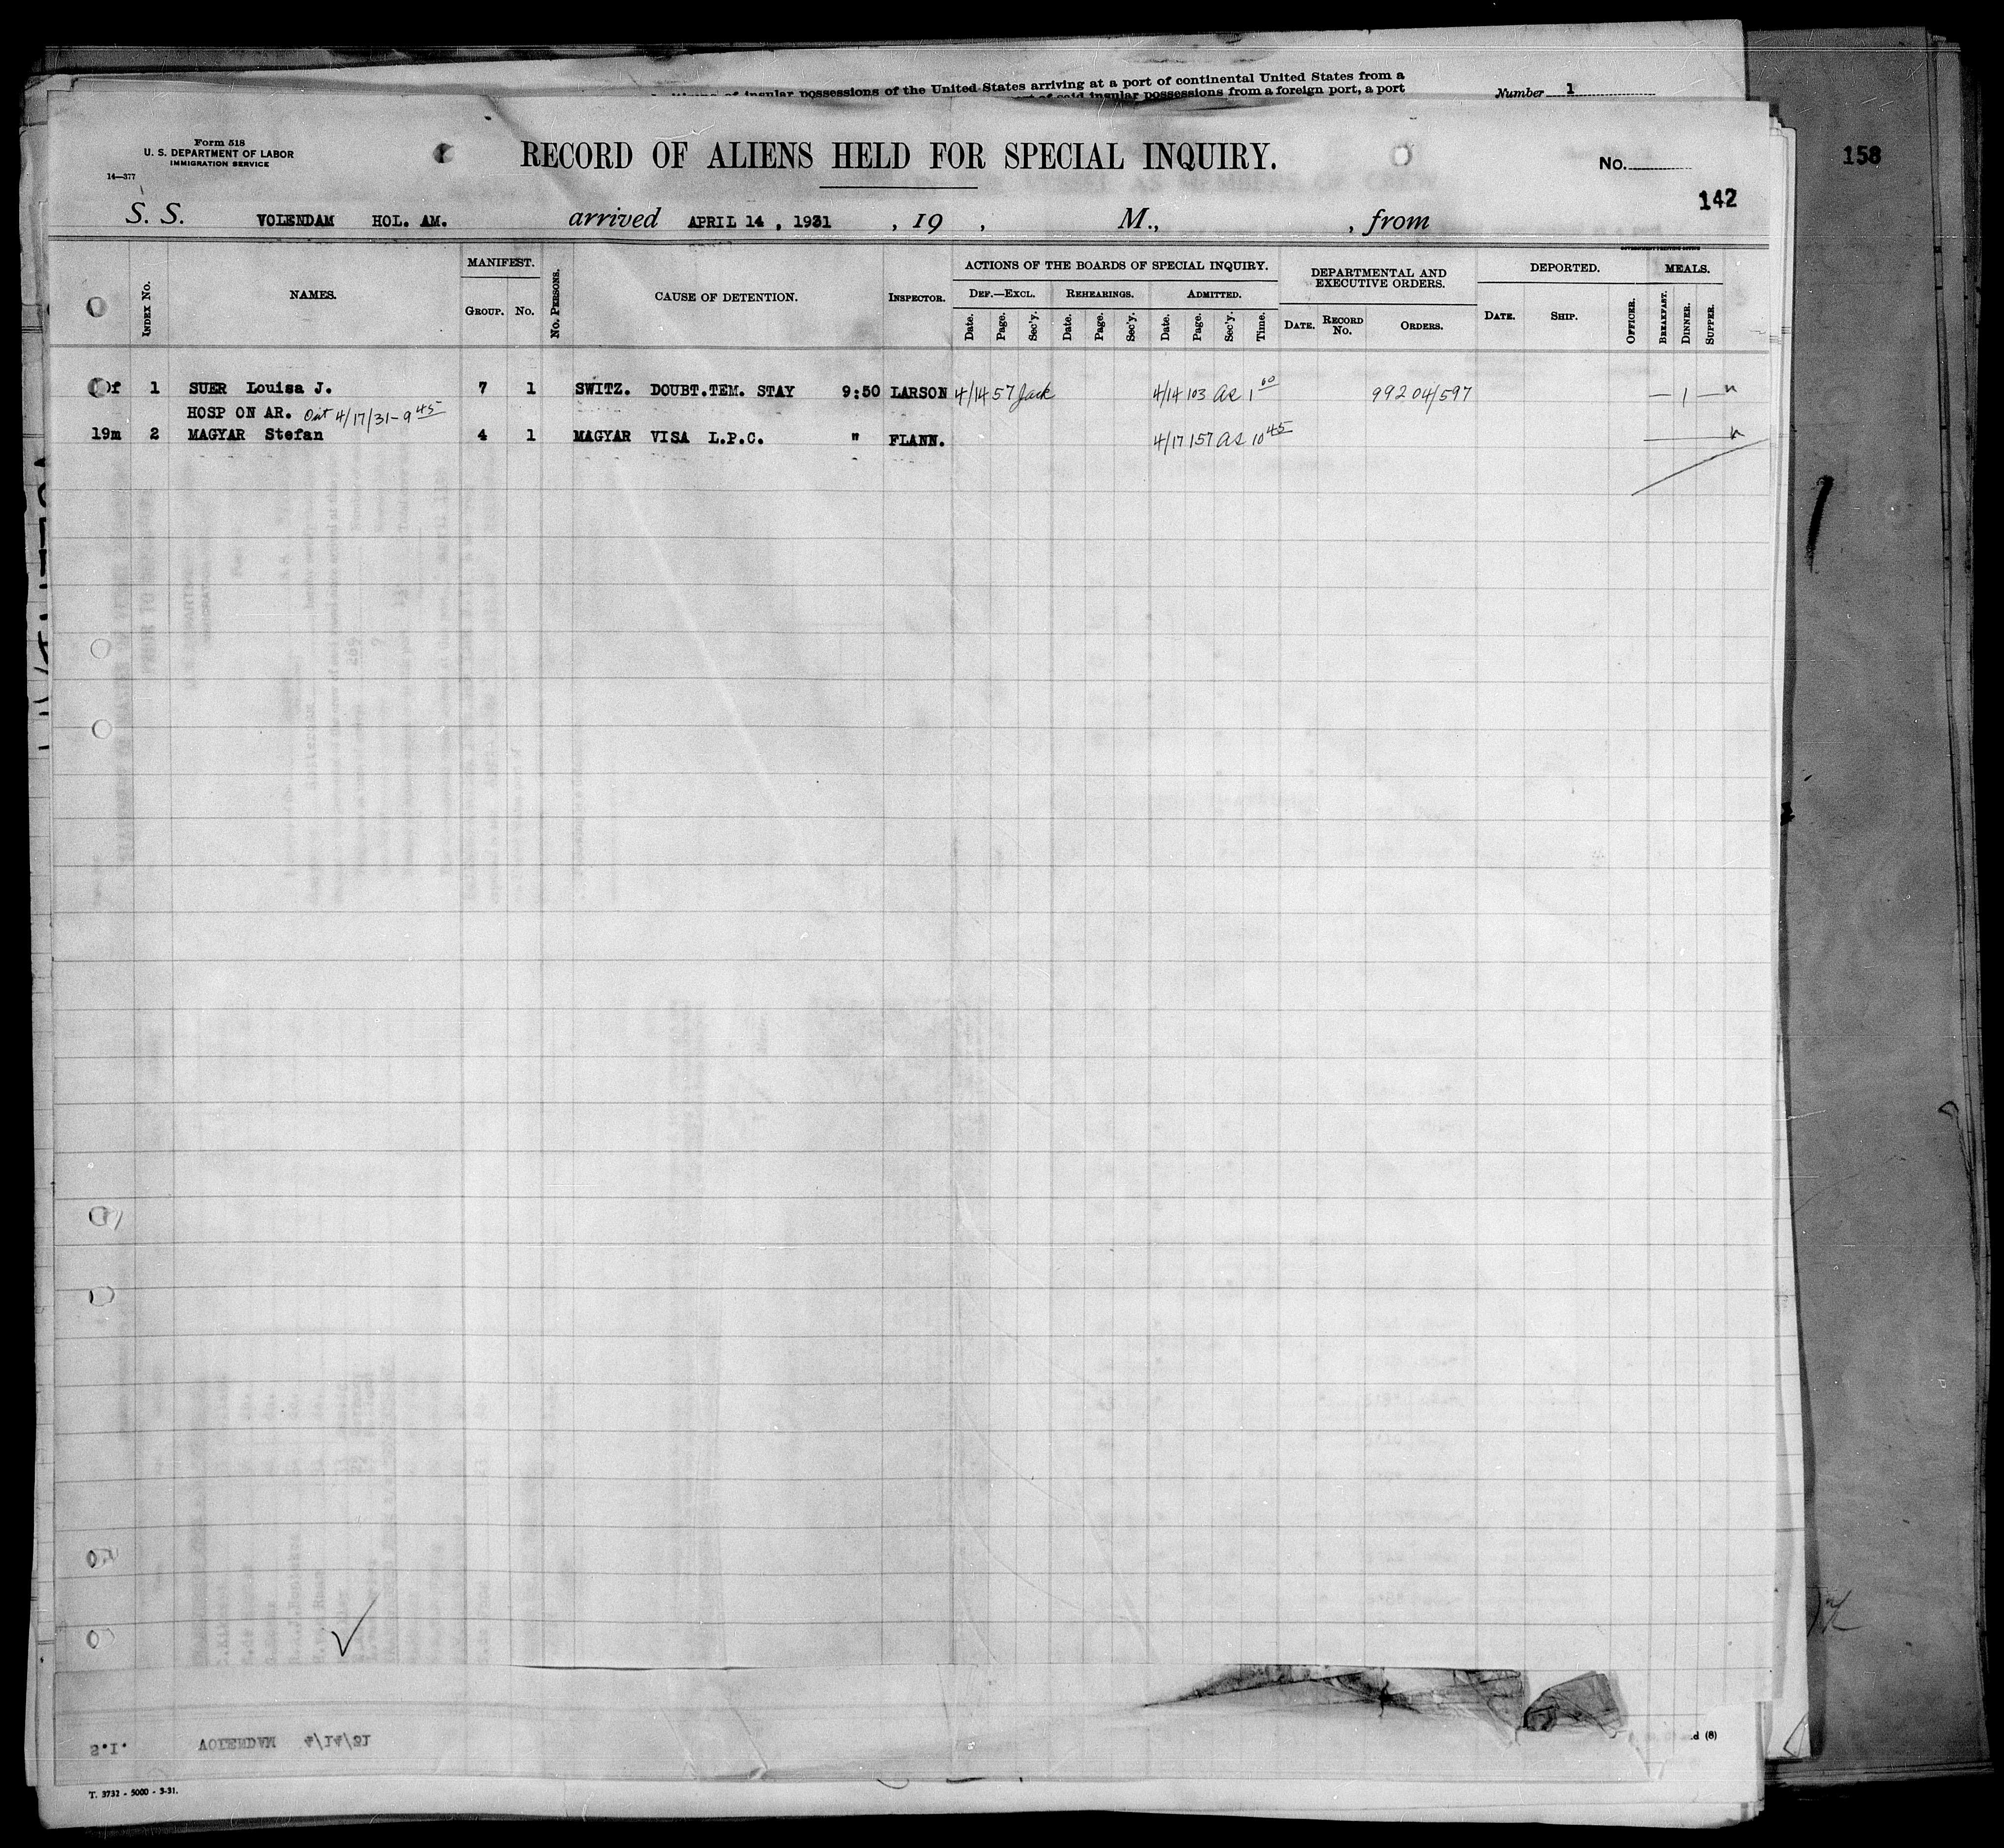 insular possessions of the United States arriving at a port of continental United States from a
of said insular possessions from a foreign port, a port
Number 1
158
Form 518
U. S. DEPARTMENT OF LABOR
IMMIGRATION SERVICE
14—377
RECORD OF ALIENS HELD FOR SPECIAL INQUIRY.
No.
142
S. S. VOLENDAM HOL. AM. arrived APRIL 14, 1931, 19 , M., , from
MANIFEST. ACTIONS OF THE BOARDS OF SPECIAL INQUIRY. DEPARTMENTAL AND EXECUTIVE ORDERS. DEPORTED. MEALS.
INDEX No. NAMES. GROUP. No. No. PERSONS. CAUSE OF DETENTION. INSPECTOR. DEF.—EXCL. REHEARINGS. ADMITTED.
Date. Page. Sec'y. Date. Page. Sec'y. Date. Page. Sec'y. Time. DATE. RECORD No. ORDERS. DATE. SHIP. OFFICER. BREAKFAST. DINNER. SUPPER.
f 1 SUER Louisa J. 7 1 SWITZ. DOUBT.TEM. STAY 9:50 LARSON 4/14 57 Jack 4/14 103 as 1 00 99204/597 — 1 —
HOSP ON AR. Out 4/17/31-9 45
19m 2 MAGYAR Stefan 4 1 MAGYAR VISA L.P.C. " FLANN. 4/17 157 as 10 45
S.I. VOLENDAM 4/14/31
d (8)
T. 3732 - 5000 - 3-31.